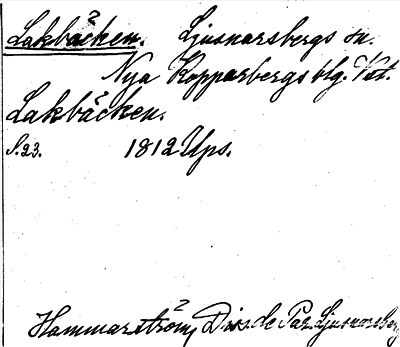 Lakbäcken. Ljusnarsbergs sn.
Nya Kopparbergs blg. Vst.
Lakbäcken.
S. 23. 1812 Ups.
Hammarström, Diss. de Par. Ljusnarsberg